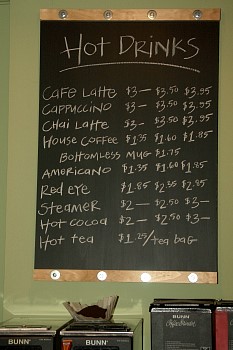 HOT DRINKS
CAFE LATTE $3— $3.50 $3.95
CAPPUCCINO $3— $3.50 $3.95
CHAI LATTE $3— $3.50 $3.95
HOUSE COFFEE $1.35 $1.60 $1.85
BOTTOMLESS MUG $1.75
AMERICANO $1.35 $1.60 $1.85
RED EYE $1.85 $2.35 $2.85
STEAMER $2— $2.50 $3—
HOT COCOA $2— $2.50 $3—
HOT TEA $1.25/TEA BAG
BUNN BUNN BUNN